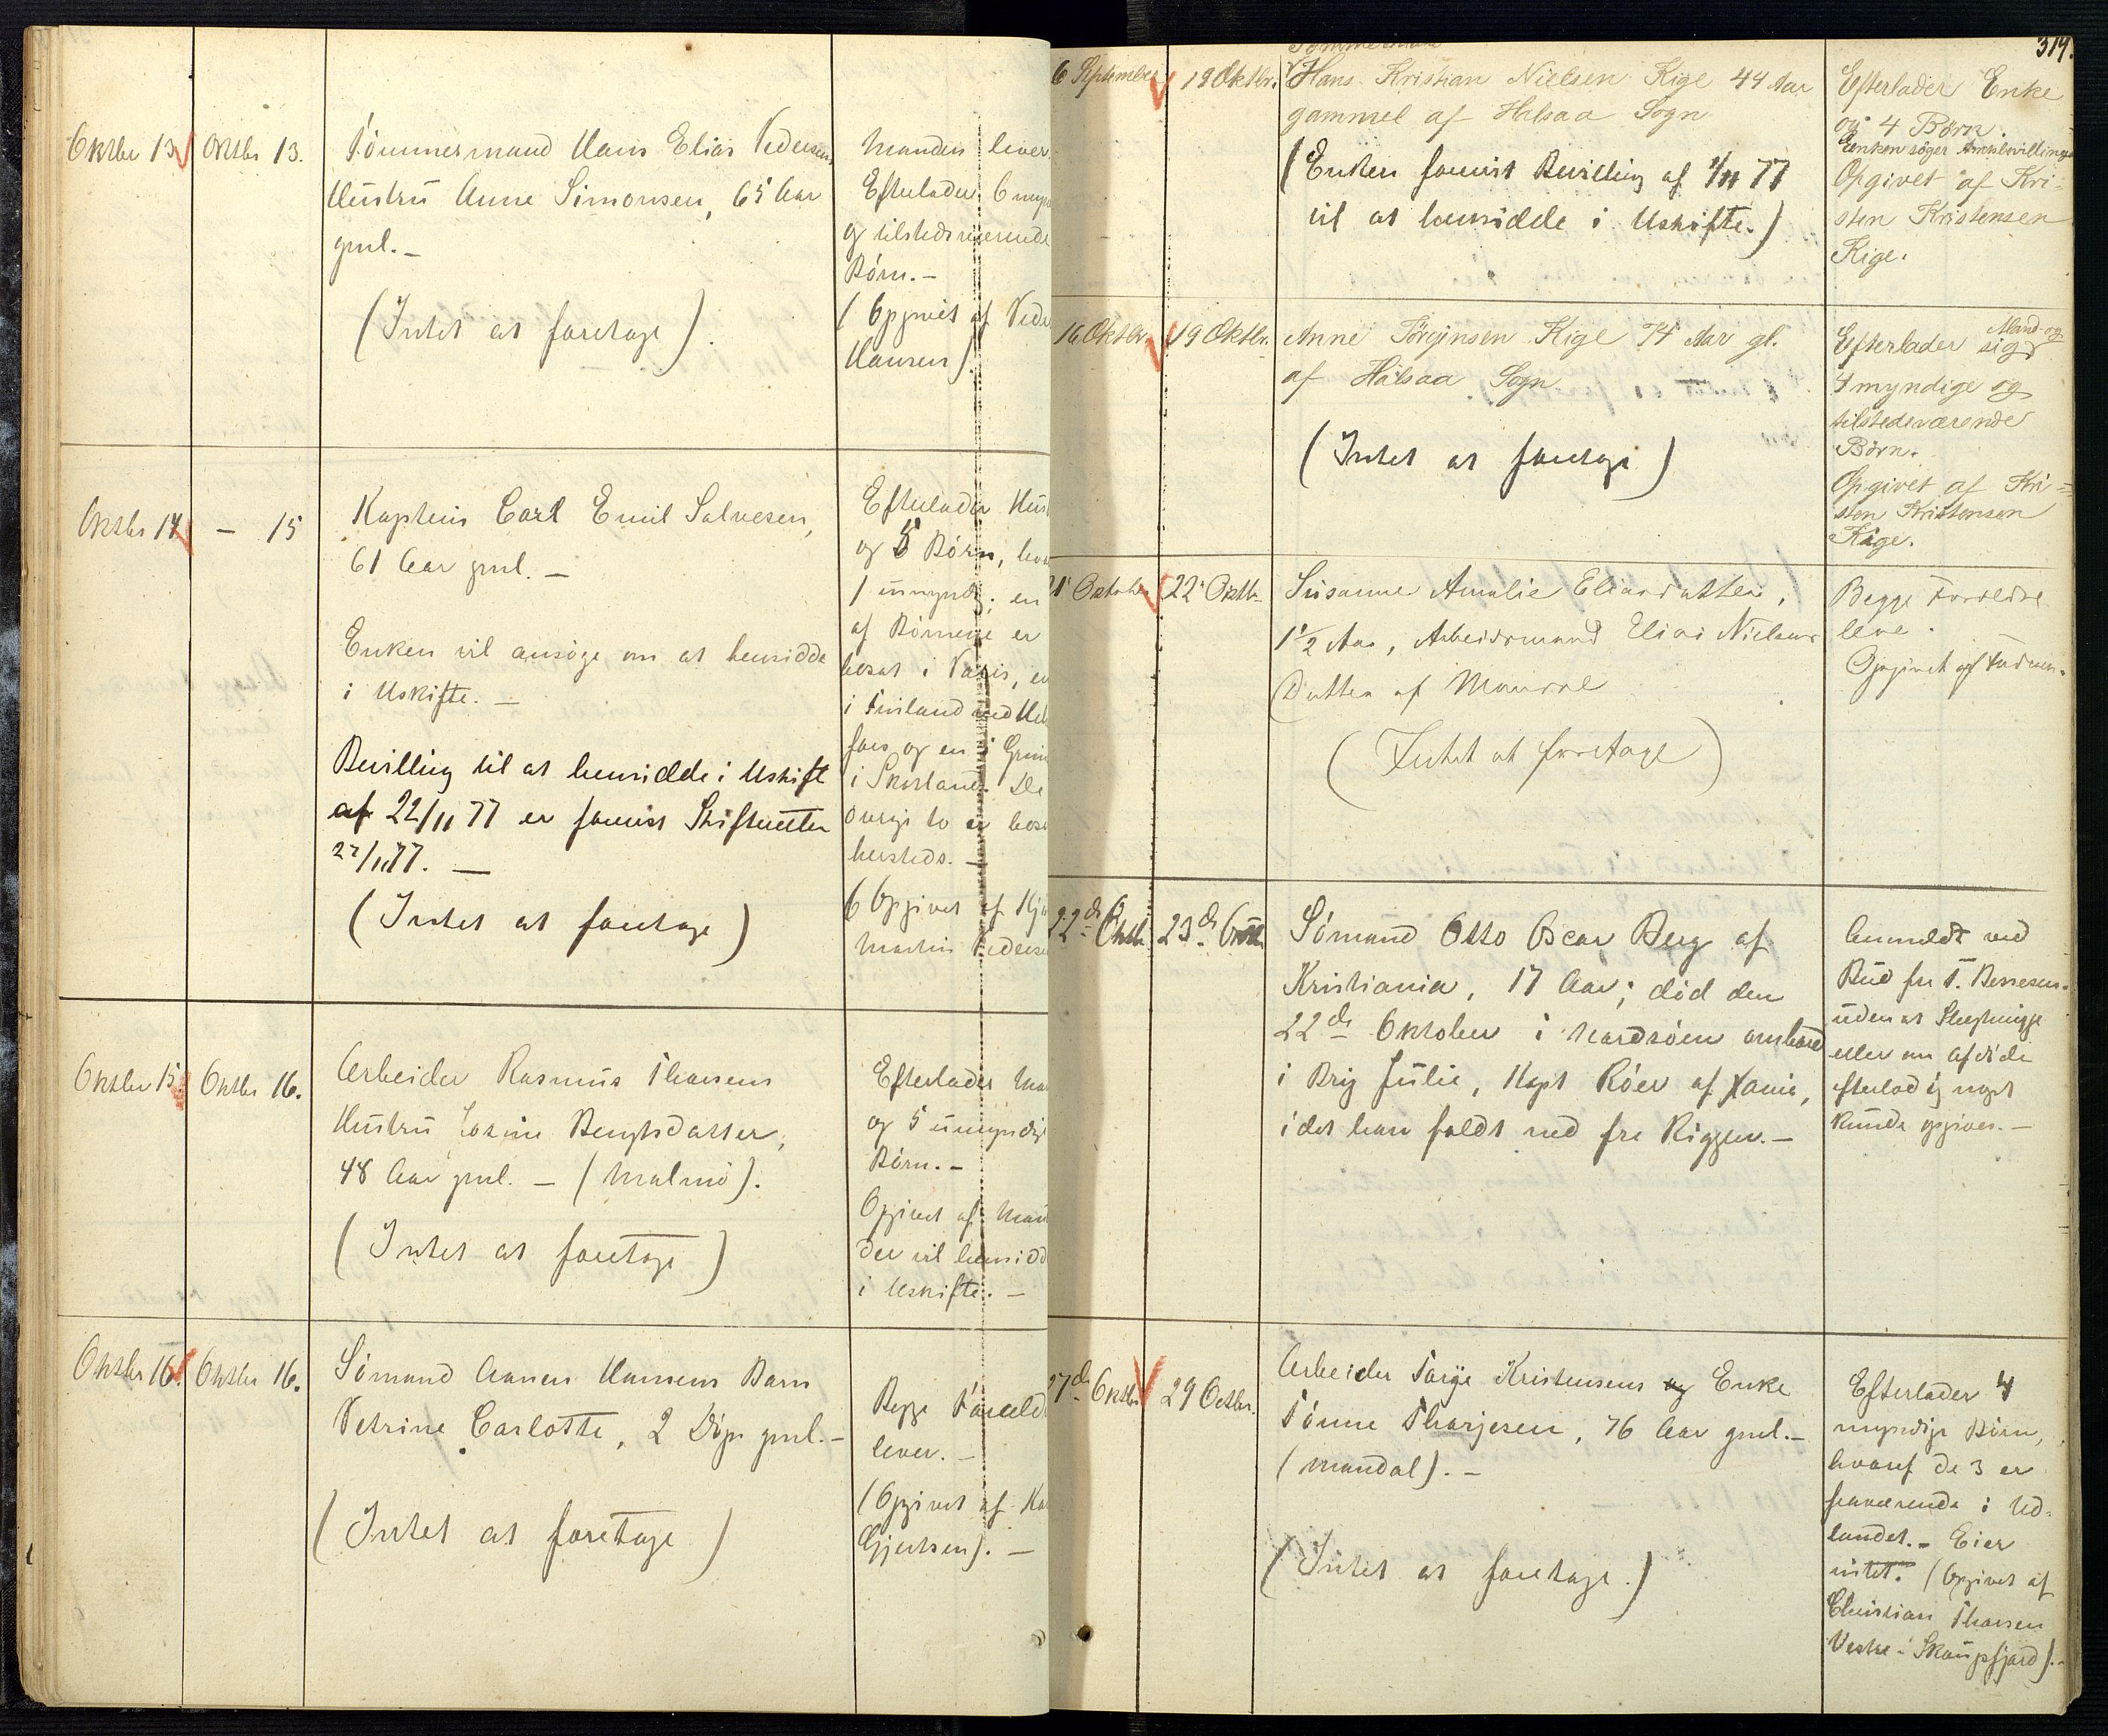 Oktbr 13 Oktbr 13. Tömmermand Hans Elias Pedersens
Hustru Anne Simonsen, 65 Aar
gml. –
(Intet at foretage).
Manden lever.
Efterlader 6
og tilstedeværende
Börn. –
(Opgivet af
Hansen).
Oktbr 14 – 15 Kaptein Carl Emil Salvesen,
61 Aar gml. –
Enken vil ansöge om at hensidde
i Uskifte. –
Bevilling til at hensidde i Uskift
af 22/11 77 er forevist Skifteretten
27/11 77. –
(Intet at foretage)
Efterlader
og 5 Börn,
1 umyndig; en
af Börnene er
bosat i Paris, en
i Finland ved
fors og en i
i Skotland. De
övrige to er
hersteds. –
Opgivet af
Martin Pedersen
Oktbr 15 Oktbr 16. Arbeider Rasmus Thorsens
Hustru Bengtsdatter,
48 Aar gml. – (Malmö).
(Intet at foretage)
Efterlader
og 5 umyndige
Börn. –
Opgivet af
der vil hensidde
i Uskifte. –
Oktbr 16. Oktbr 16. Sömand Hansens Barn
Petrine Carlotte, 2 Dage gml. –
(Intet at foretage)
Begge
lever. –
(Opgivet af
Gjertsen). –
319.
6 September 19 Oktbr. Tömmermand
Hans Kristian Nielsen Kige 44 Aar
gammel af Halsaa Sogn
(Enken forevist Bevilling af 77
til at hensidde i Uskifte.)
Efterlader Enke
og 4 Börn.
Enken söger
Opgivet af Kri-
sten Kristensen
Kige.
16 Oktbr. 19 Oktbr. Anne Törgjnsen Kige 74 Aar gl.
af Halsaa Sogn
(Intet at foretage)
Mand og
Efterlader sig
4 myndige og
tilstedeværende
Börn.
Opgivet af Kri-
sten Kristensen
Kige.
Oktober 22 Oktbr Susanne Amalie Eliasdatter,
1 1/2 Aar, Arbeidsmand Elias Nielsens
Datter af
(Intet at foretage)
Begge Forældre
leve.
Opgivet af
22de Oktbr. 23de Sömand Otto Oscar Berg af
Kristiania, 17 Aar; död den
22de Oktober i Nordsöen ombord
i Brig Julie, Kapt Röer af
idet han faldt ned fra Riggen. –
Anmeldt ved
Bud fra T.
uden at
eller om afdöde
efterlod sig noget
kunde opgives. –
27de Oktbr 29 Octbr. Arbeider Torge Kristensens Enke
Tönne Tharjesen, 76 Aar gml. –
(Mandal). –
(Intet at foretage.)
Efterlader 4
myndige Börn,
hvoraf de 3 er
fraværende i Ud-
landet. – Eier
intet. (Opgivet af
Christian Thorsen
Vestre Skougsfjord). –